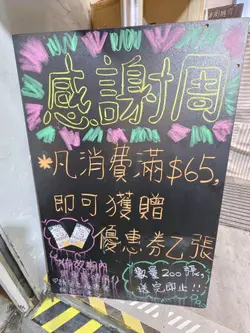 感謝周
*凡消費滿$65,
即可獲贈
優惠券乙張
數量200張,
送完即止!!